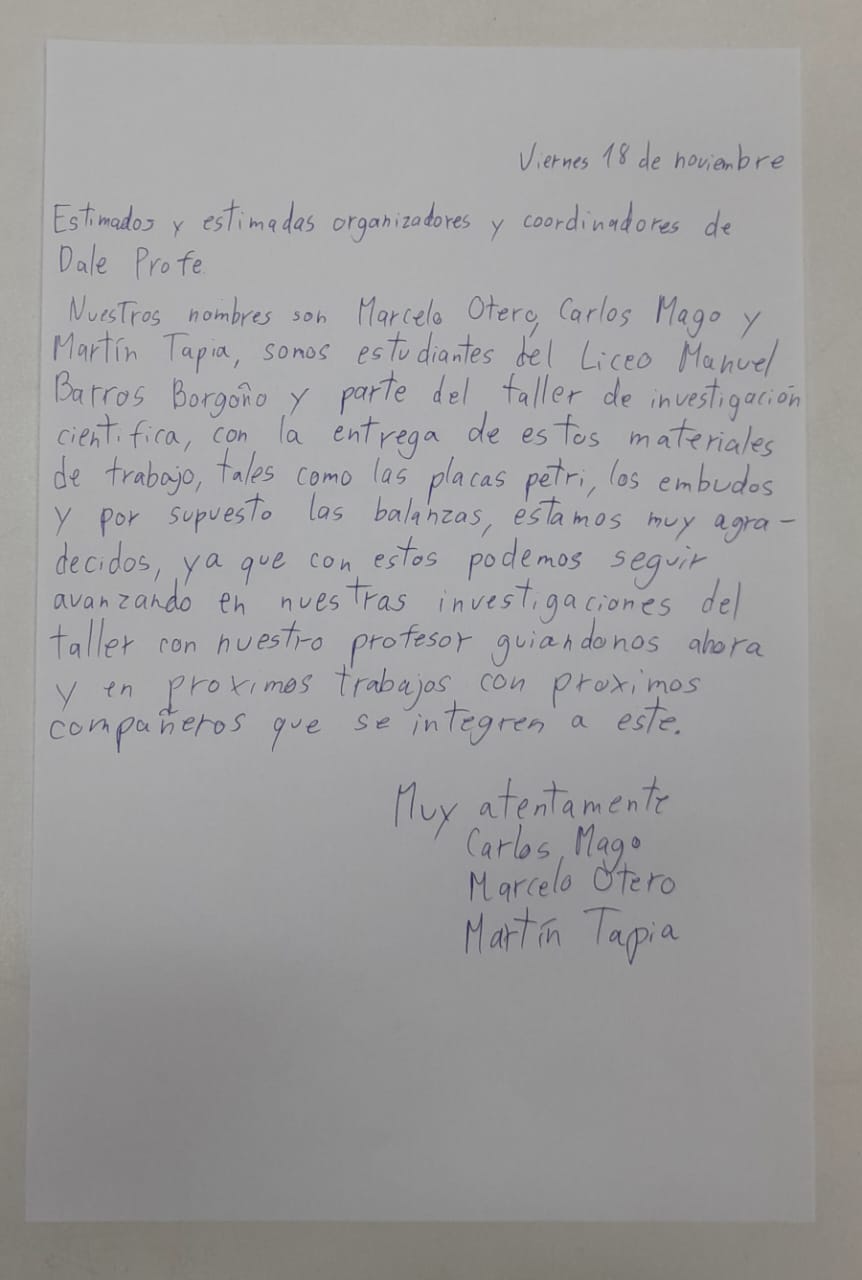 Viernes 18 de noviembre
Estimados y estimadas organizadores y coordinadores de
Dale Profe.
Nuestros nombres son Marcelo Otero, Carlos Mago y
Martín Tapia, somos estudiantes del Liceo Manuel
Barros Borgoño y parte del taller de investigación
cientifica, con la entrega de estos materiales
de trabajo, tales como las placas petri, los embudos
y por supuesto las balanzas, estamos muy agra-
decidos, ya que con estos podemos seguir
avanzando en nuestras investigaciones del
taller con nuestro profesor guiandonos ahora
y en proximos trabajos con proximos
compañeros que se integren a este.
Muy atentamente
Carlos Mago
Marcelo Otero
Martín Tapia